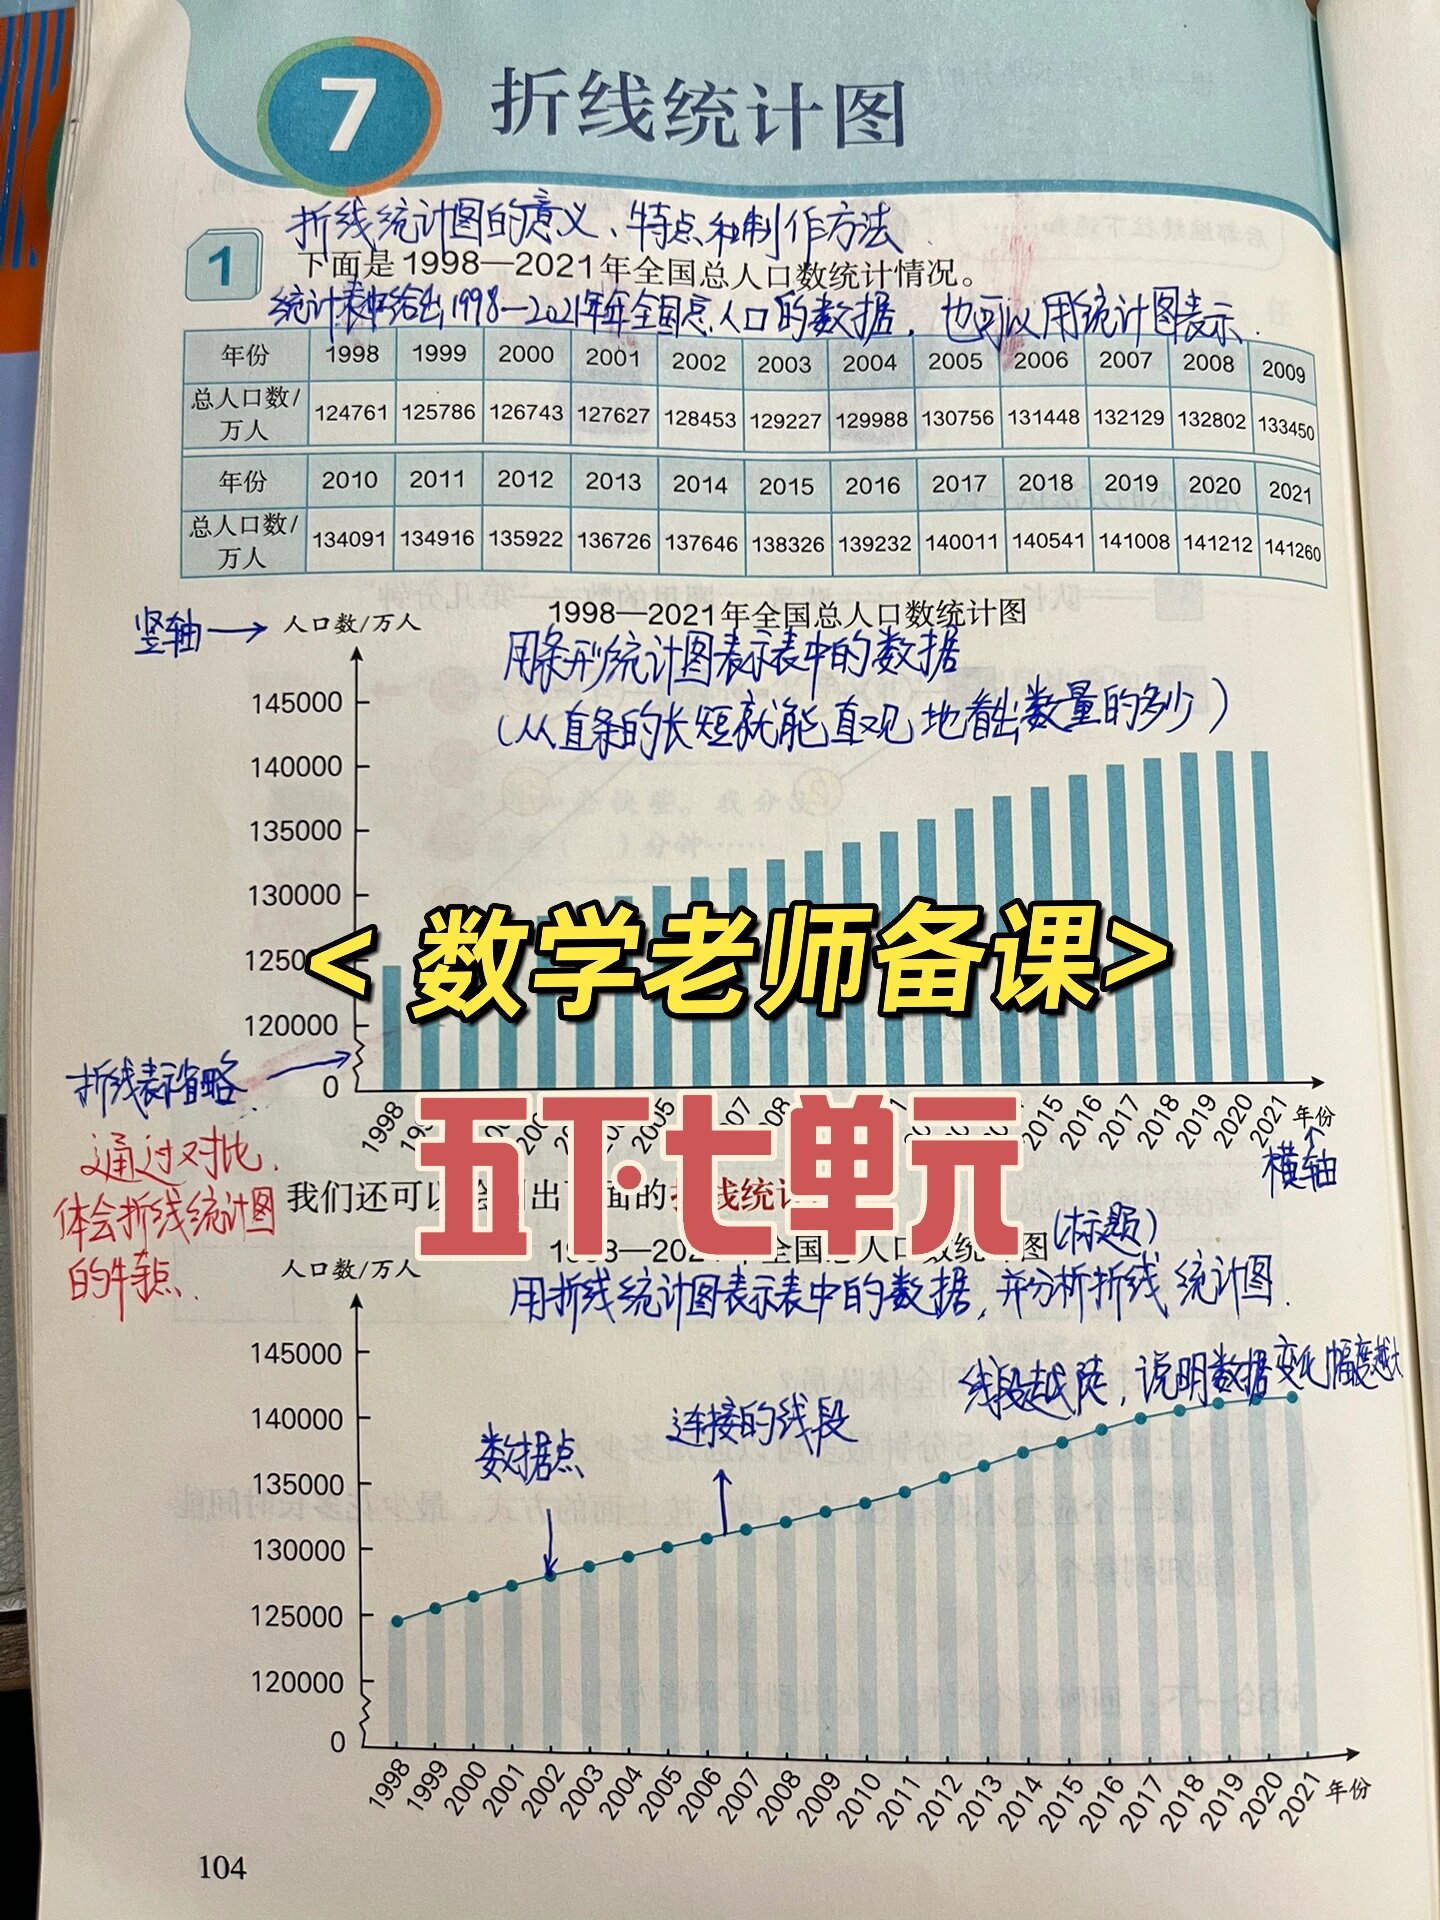 7 折线统计图
折线统计图的意义、特点和制作方法.
1 下面是1998—2021年全国总人口数统计情况。
统计表中给出1998—2021年年全国总人口的数据，也可以用统计图表示.
年份 1998 1999 2000 2001 2002 2003 2004 2005 2006 2007 2008 2009
总人口数/万人 124761 125786 126743 127627 128453 129227 129988 130756 131448 132129 132802 133450
年份 2010 2011 2012 2013 2014 2015 2016 2017 2018 2019 2020 2021
总人口数/万人 134091 134916 135922 136726 137646 138326 139232 140011 140541 141008 141212 141260
竖轴
人口数/万人
1998—2021年全国总人口数统计图
用条形统计图表示表中的数据
（从直条的长短就能直观地看出数量的多少）
145000
140000
135000
130000
<数学老师备课>
120000
0
折线表示省略
1998
2005
2015 2016 2017 2018 2019 2020 2021 年份
横轴
五下·七单元
通过对比.
体会折线统计图
的特点.
我们还可以
面的折线统计
(标题)
人口数/万人
全国总人口数统计图
用折线统计图表示表中的数据，并分析折线统计图.
线段越陡，说明数据变化幅度越大
连接的线段
数据点
145000
140000
135000
130000
125000
120000
0
1998 1999 2000 2001 2002 2003 2004 2005 2006 2007 2008 2009 2010 2011 2012 2013 2014 2015 2016 2017 2018 2019 2020 2021 年份
104